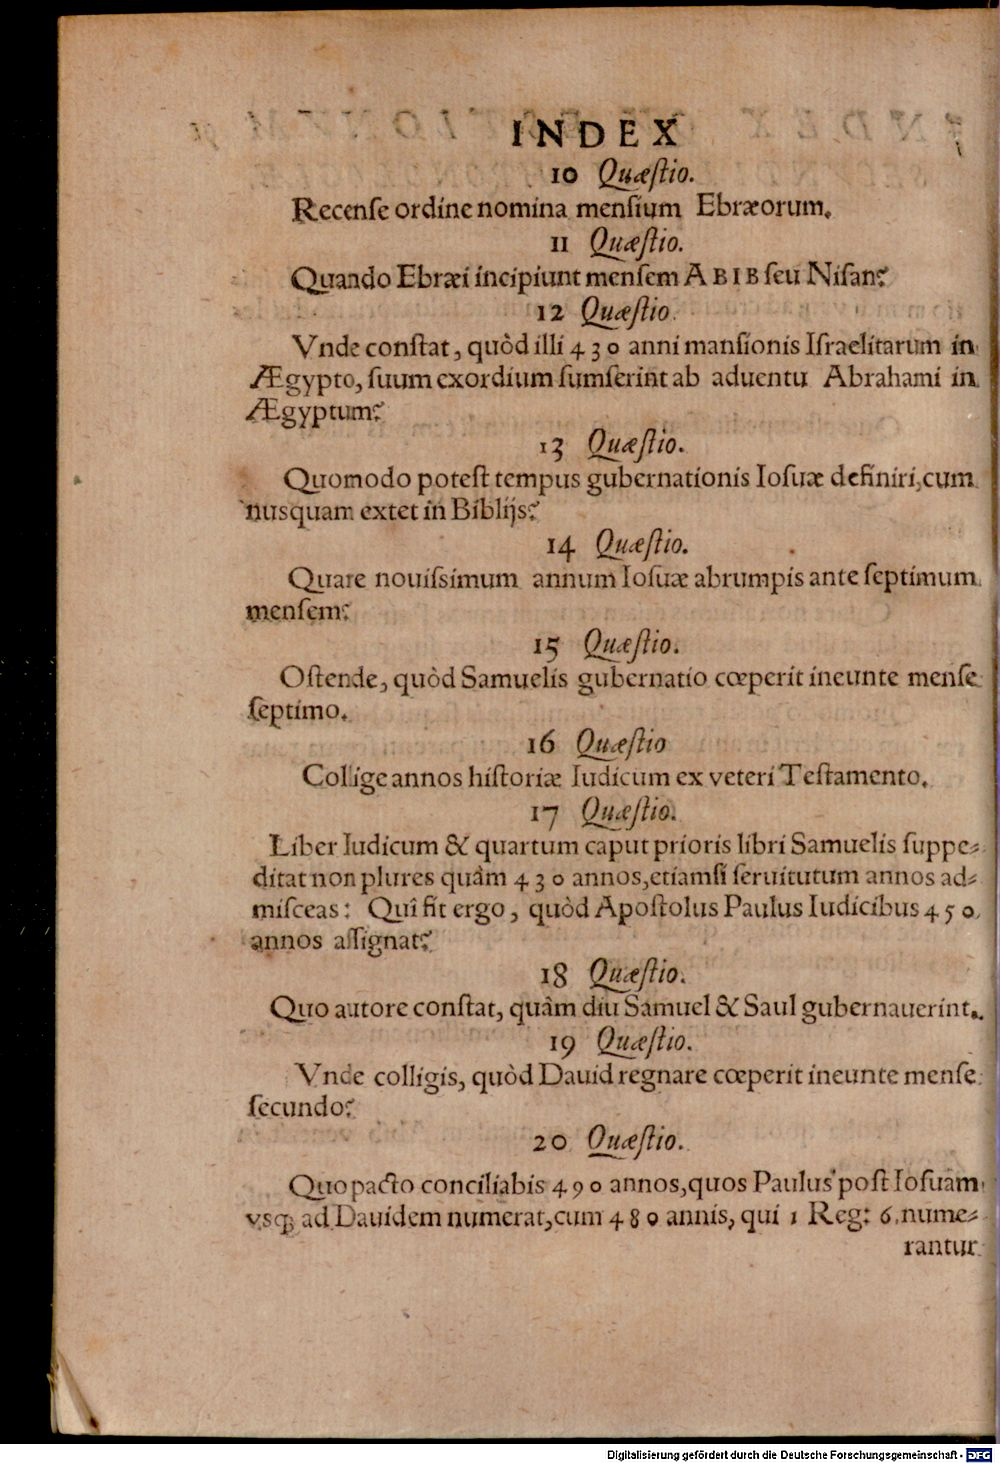 INDEX
10 Quæſtio.
Recenſe ordine nomina menſium Ebræorum.
11 Quæſtio.
Quando Ebræi incipiunt menſem ABIB ſeu Niſan?
12 Quæſtio.
Vnde conſtat, quòd illi 430 anni manſionis Iſraelitarum in
Ægypto, ſuum exordium ſumſerint ab aduentu Abrahami in
Ægyptum?
13 Quæſtio.
Quomodo poteſt tempus gubernationis Ioſuæ definiri, cum
nusquam extet in Biblijs?
14 Quæſtio.
Quare nouiſsimum annum Ioſuæ abrumpis ante ſeptimum
menſem?
15 Quæſtio.
Oſtende, quòd Samuelis gubernatio cœperit ineunte menſe
ſeptimo.
16 Quæſtio
Collige annos hiſtoriæ Iudicum ex veteri Teſtamento.
17 Quæſtio.
Liber Iudicum & quartum caput prioris libri Samuelis ſuppe⸗
ditat non plures quàm 430 annos, etiamſi ſeruitutum annos ad⸗
miſceas: Quî fit ergo, quòd Apoſtolus Paulus Iudicibus 450
annos aſſignat?
18 Quæſtio.
Quo autore conſtat, quàm diu Samuel & Saul gubernauerint.
19 Quæſtio.
Vnde colligis, quòd Dauid regnare cœperit ineunte menſe
ſecundo?
20 Quæſtio.
Quo pacto conciliabis 490 annos, quos Paulus poſt Ioſuam
vsꝗ ad Dauidem numerat, cum 480 annis, qui 1 Reg: 6. nume⸗
rantur
Digitalisierung gefördert durch die Deutsche Forschungsgemeinschaft - DFG